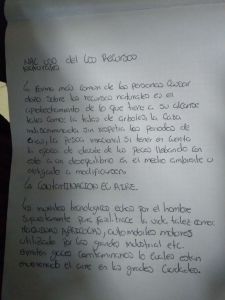 MAL USO del los Recursos
Naturales
La forma más común de las personas causar
daño sobre los recursos naturales es el
aprobechamiento de lo que tiene a su alcance
tales como: la talas de arboles, la caza
indiscriminada sin respetar los periodos de
cria, la pesca irracional si tener en cuenta
la epoca de desobe de los peces llebando con
esto a un desequilibrio en el medio ambiente u
obligado a modificarsen.
LA CONTAMINACION EL AIRE.
Los inventos tecnologicos echos por el hombre
supuestamente para facilitarce la vida tales como:
MAQUINARIA AGRICOLA, automobiles motores
utilizado por las grandes industrial etc.
emiten gaces contaminando lo cuales estan
envenenando el aire en las grandes ciudades.